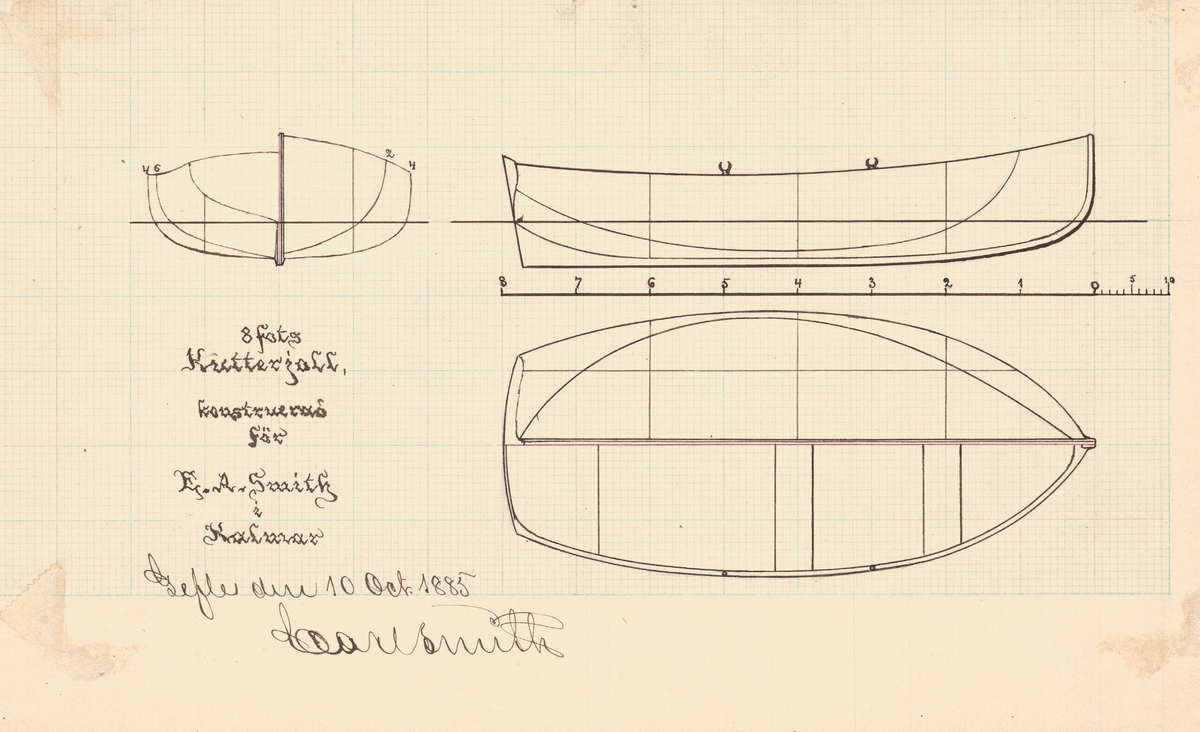 4 6
2
4
8 7 6 5 4 3 2 1 0 5 10
8 fots
Kutterjoll,
konstruerad
för
E. A. Smith
i
Kalmar
Gefle den 10 Oct. 1885
Carl Smith